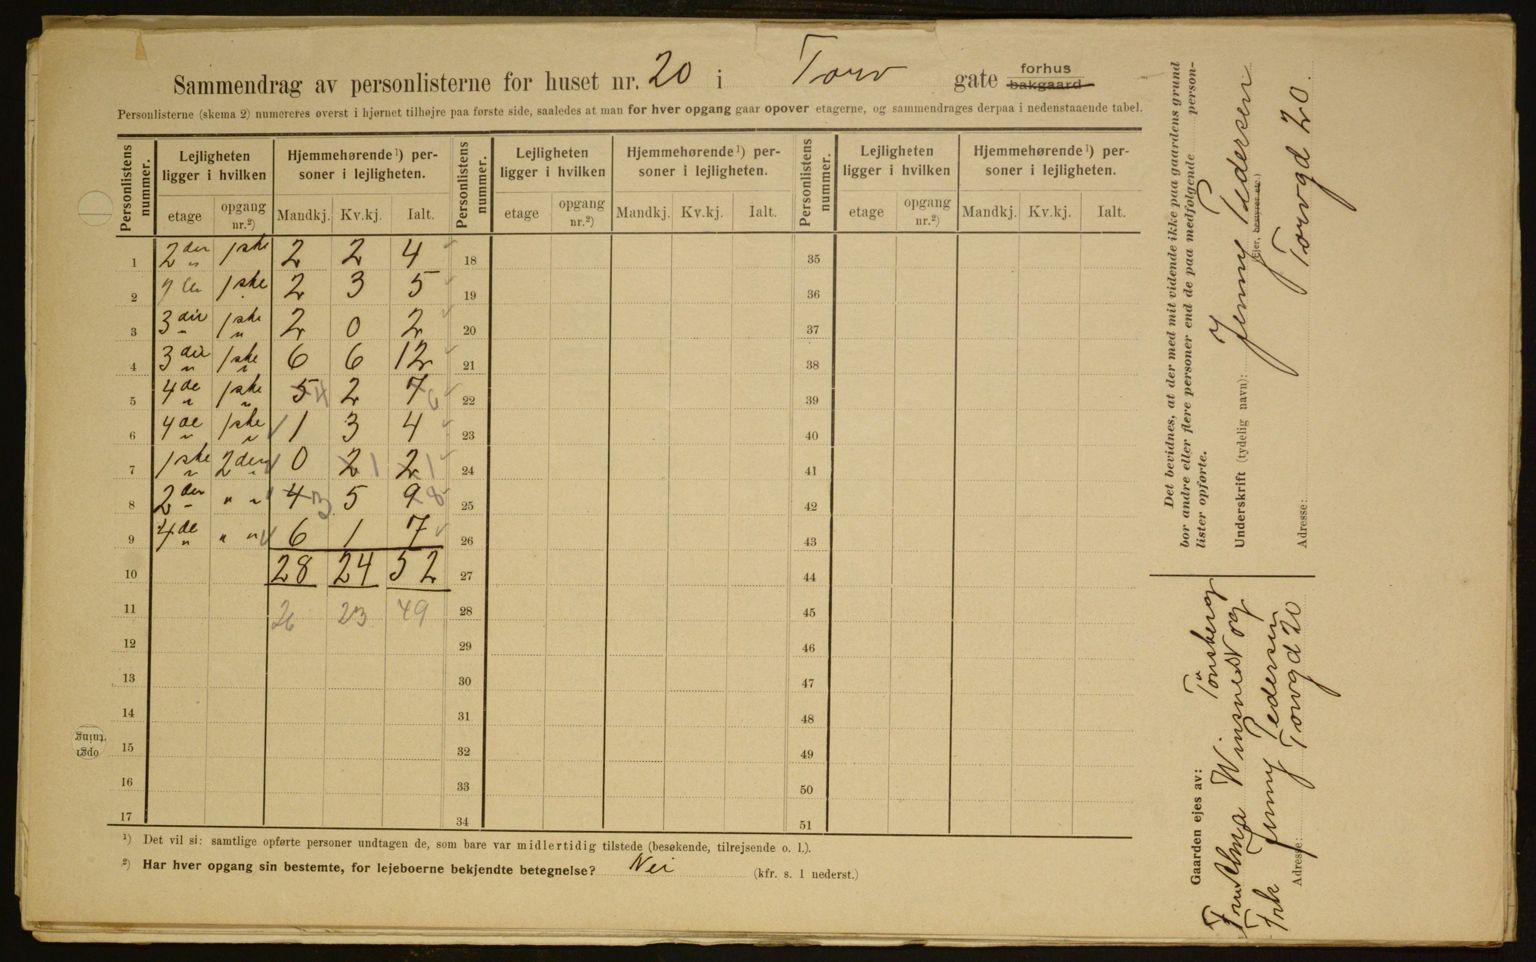 Sammendrag av personlisterne for huset nr. 20 i Torv gate forhus bakgaard
Personlisterne (skema 2) numoreres øverst i hjørnet tilhøjre paa første side, saaledes at man for hver opgang gaar opover etagerne, og sammendrages derpaa i nedenstaaende tabel.
Personlistens nummer. Lejligheten ligger i hvilken Hjemmehørende ¹) personer i lejligheten. Personlistens nummer. Lejligheten ligger i hvilken Hjemmehørende ¹) personer i lejligheten. Personlistens nummer. Lejligheten ligger i hvilken Hjemmehørende ¹) personer i lejligheten.
etage opgang nr.²) Mandkj. Kv.kj. Ialt. etage opgang nr.²) Mandkj. Kv.kj. Ialt. etage opgang nr.²) Mandkj. Kv.kj. Ialt.
1 2den " 1ste 2 2 4 18 35
2 1ste 2 3 5 19 36
3 3die " 1ste " 2 0 2 20 37
4 3die " 1ste " 6 6 12 21 38
5 4de " 1ste " 5 4 2 7 6 22 39
6 4de " 1ste " 1 3 4 23 40
7 1ste " 2den " 0 2 1 2 1 24 41
8 2den " " " 4 3 5 9 8 25 42
9 4de " " " 6 1 7 26 43
10 28 24 52 27 44
11 26 23 49 28 45
12 29 46
13 30 47
14 31 48
15 32 49
16 33 50
17 34 51
¹) Det vil si: samtlige opførte personer undtagen de, som bare var midlertidig tilstede (besøkende, tilrejsende o. l.).
²) Har hver opgang sin bestemte, for lejeboerne bekjendte betegnelse? Nei (kfr. s. 1 nederst.)
Det bevidnes, at der med mit vidende ikke paa gaardens grund
bor andre eller flere personer end de paa medfølgende personlister
opførte.
Underskrift (tydelig navn): Jenny Pedersen
(Ejer, bestyrer etc.)
Adresse: Torvgd 20.
Gaarden ejes av:
Fru Alma Winsnes Tönsberg og
Frk Jenny Pedersen
Adresse: Torvgd 20